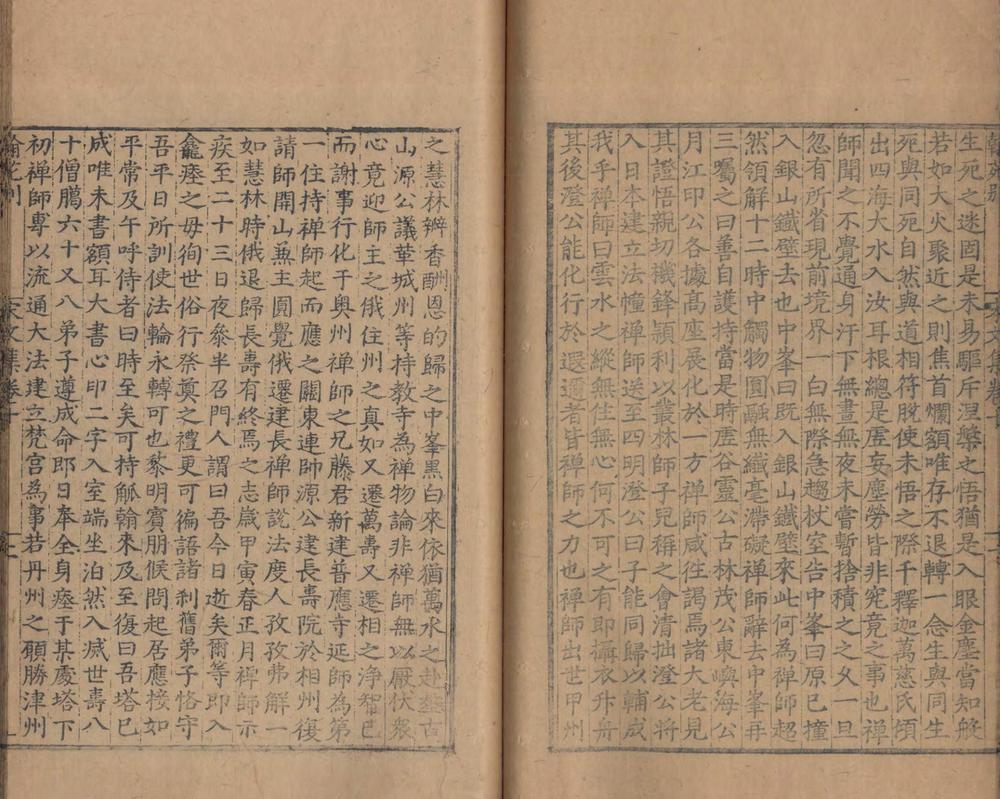 生死之迷固是未易驅斥涅槃之悟猶是入眼金塵當知般
若如大火聚近之則焦首爛額唯存不退轉一念生與同生
死與同死自然與道相符脫使未悟之際千釋迦萬慈氏傾
出四海大水入汝耳根總是虛妄塵勞皆非究竟之事也禪
師聞之不覺通身汗下無晝無夜未嘗暫捨積之之久一旦
忽有所省現前境界一白無際急趨杖室告中峯曰原已撞
入銀山鐵壁去也中峯曰既入銀山鐵壁來此何為禪師超
然領解十二時中觸物圓融無纖毫滯礙禪師辭去中峯再
三屬之曰善自護持當是時虛谷靈公古林茂公東嶼海公
月江印公各據高座展化於一方禪師咸徃謁焉諸大老見
其證悟親切機鋒頴利以叢林師子兒稱之會清拙澄公將
入日本建立法幢禪師送至四明澄公曰子能同歸以輔成
我乎禪師曰雲水之縱無住無心何不可之有即攝衣升舟
其後澄公能化行於遐邇者皆禪師之力也禪師出世甲州
之慧林瓣香酬恩的歸之中峯黑白來依猶萬水之赴壑古
山源公議華城州等持教寺為禪物論非禪師無以厭伏眾
心竟迎師主之俄住州之真如又遷萬壽又遷相之淨智已
而謝事行化于奥州禪師之兄藤君新建普應寺延師為第
一住持禪師起而應之關東連師源公建長壽院於相州復
請師開山兼主圓覺俄遷建長禪師說法度人孜孜弗解一
如慧林時俄退歸長壽有終焉之志歲甲寅春正月禪師示
疾至二十三日夜叅半召門人謂曰吾今日逝矣爾等即入
龕瘞之毋徇世俗行祭奠之禮更可徧語諸刹舊弟子恪守
吾平日所訓使法輪永轉可也黎明賓朋候問起居應接如
平常及午呼侍者曰時至矣可持觚翰來及至復曰吾塔已
成唯未書額耳大書心印二字入室端坐泊然入滅世壽八
十僧臘六十又八弟子遵成命即日奉全身瘞于某處塔下
初禪師專以流通大法建立梵宫為事若丹州之願勝津州